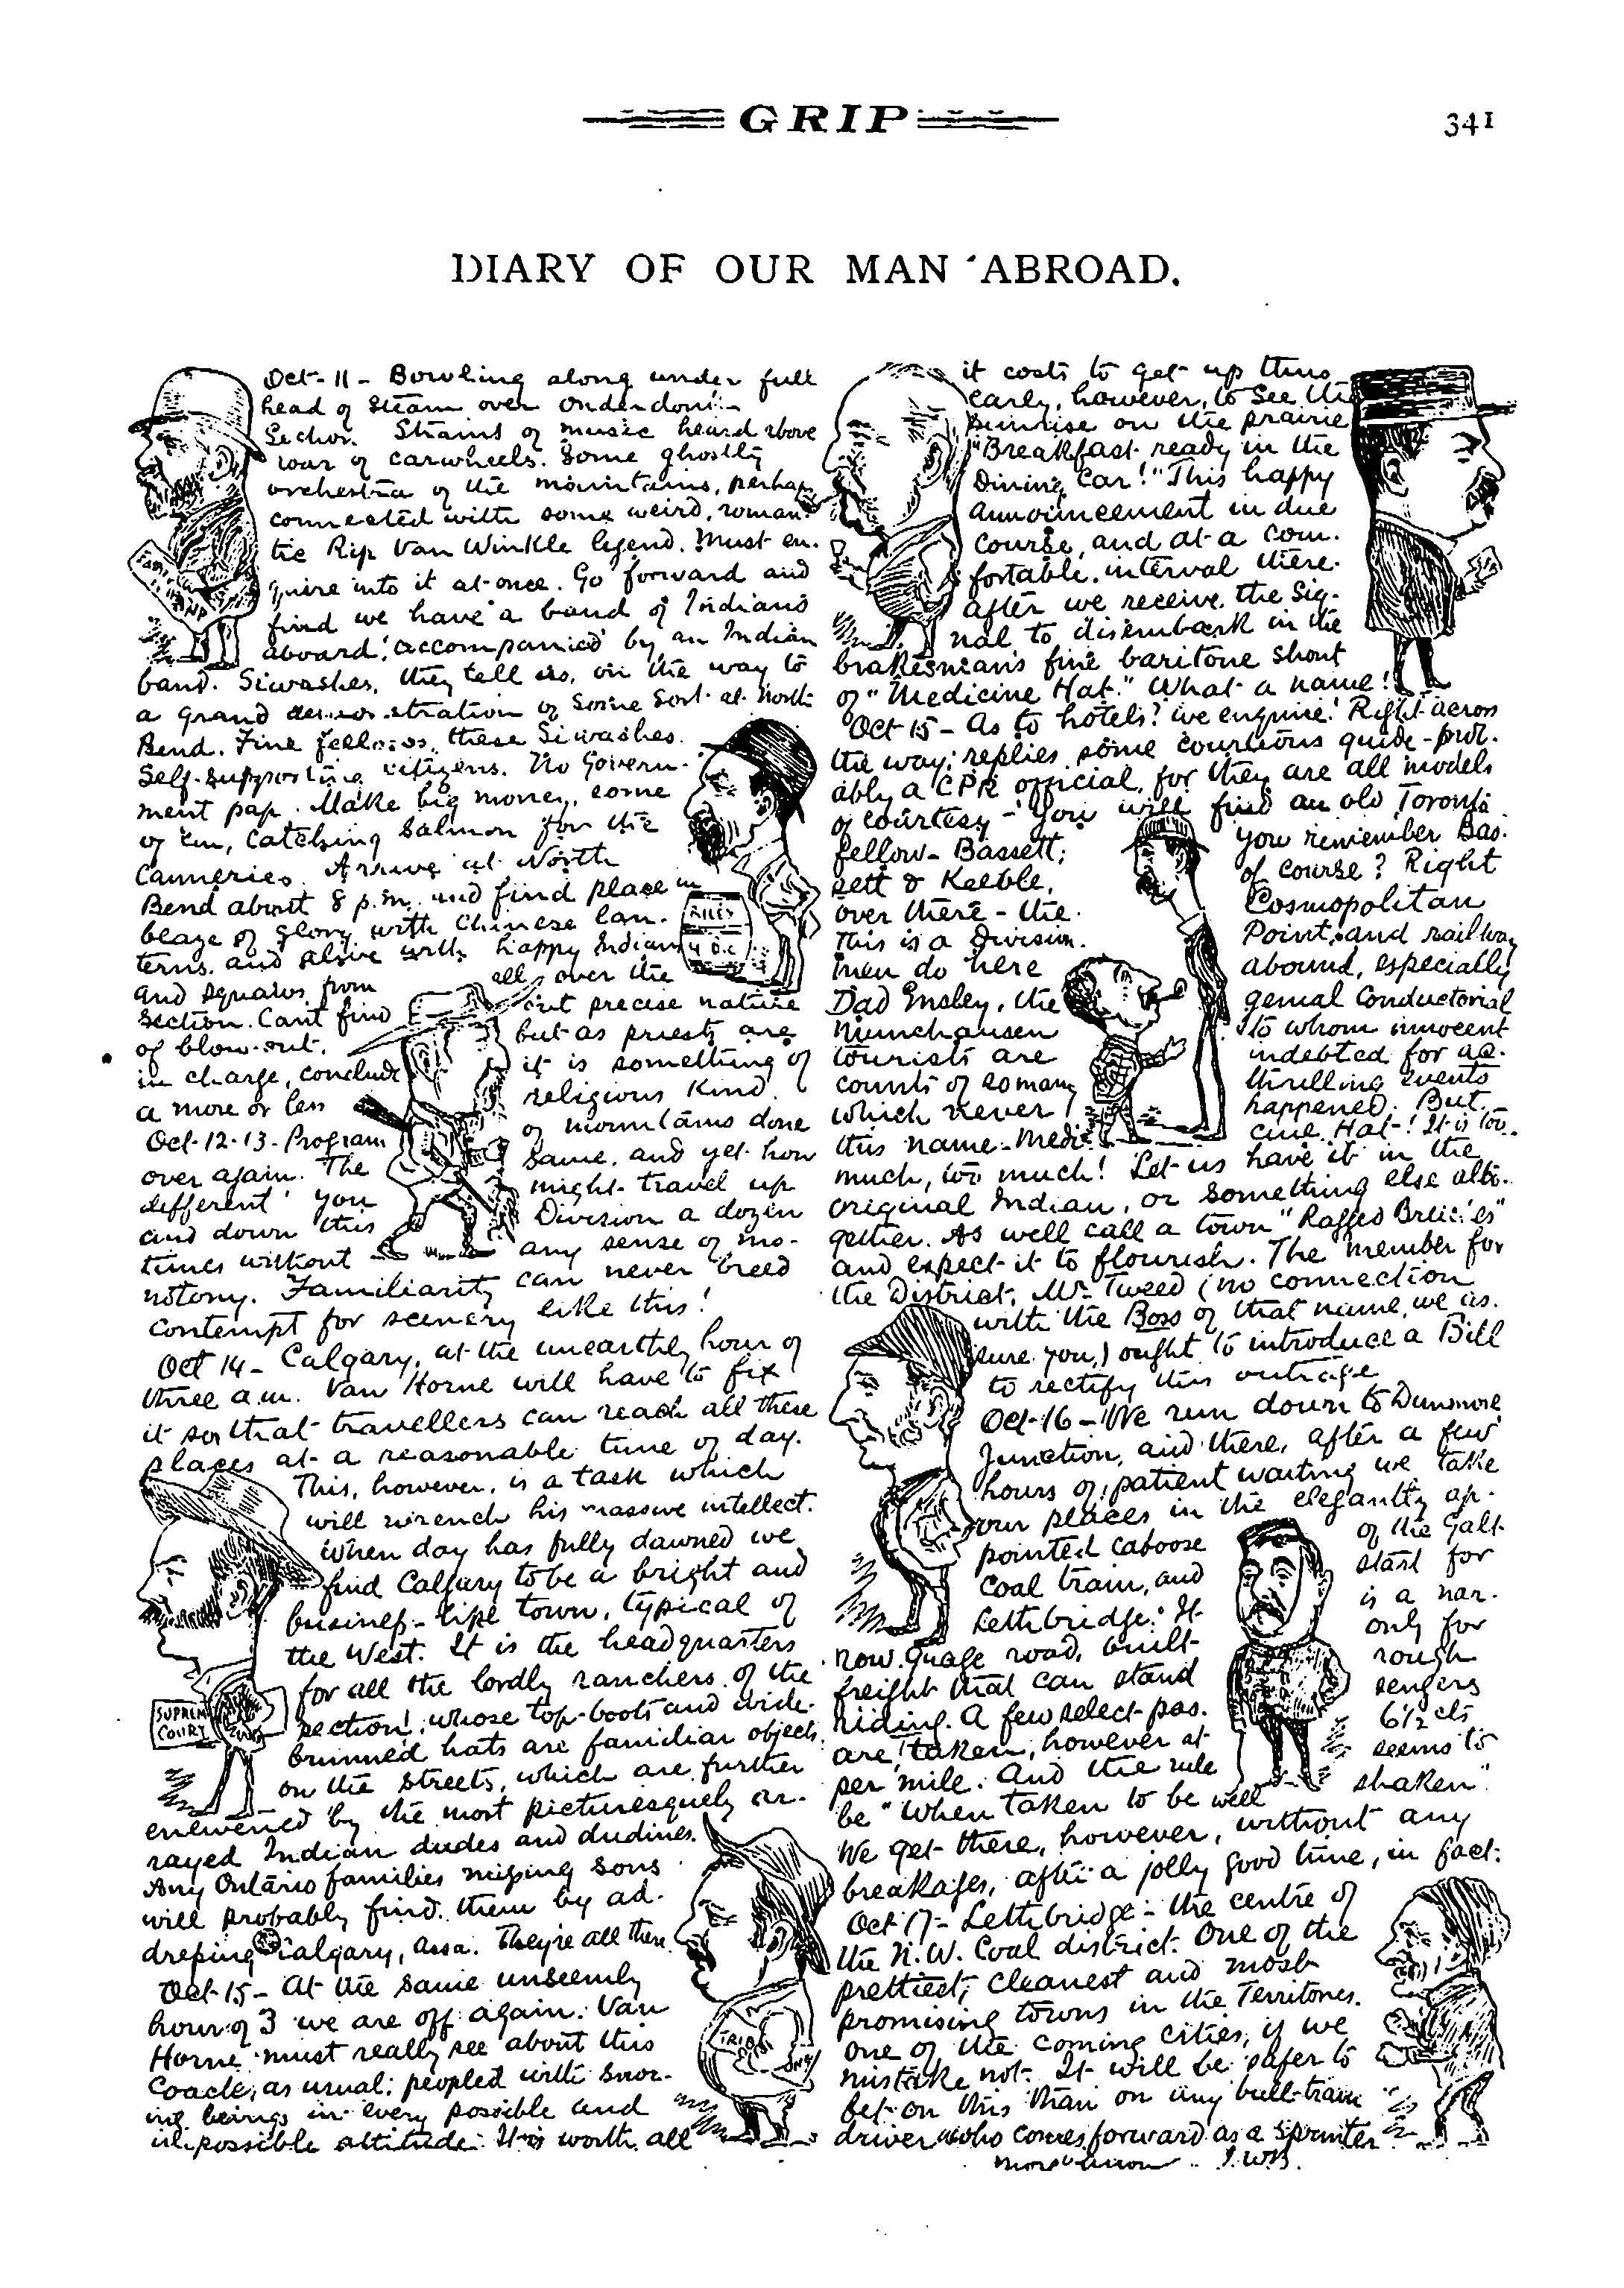 GRIP
341
DIARY OF OUR MAN ABROAD.
Oct-11- Bowling along under full
head of steam over Onderdonk
Section. Strains of music heard above
roar of carwheels. Some ghostly
orchestra of the mountains, perhaps
connected with some weird, roman-
tic Rip Van Winkle legend. Must en-
quire into it at once. Go forward and
find we have a band of Indians
aboard, accompanied by an Indian
band. Siwashes, they tell us, on the way to
a grand demonstration of some sort at North
Bend. Fine fellows, these Siwashes.
Self-supporting citizens. No Govern-
ment pap. Make big money, some
of 'em, catching salmon for the
canneries. Arrive at North
Bend about 8 p.m. and find place in
blaze of glory with Chinese lan-
terns, and alive with happy Indians
and squaws from all over the
section. Can't find out precise nature
of blow-out, but as priests are
in charge, conclude it is something of
a more or less religious kind.
Oct-12-13-Program of mountains done
over again. The same, and yet how
different! You might travel up
and down this Division a dozen
times without any sense of mo-
notony. Familiarity can never breed
contempt for scenery like this!
Oct 14- Calgary, at the unearthly hour of
three a.m. Van Horne will have to fix
it so that travellers can reach all these
places at a reasonable time of day.
This, however, is a task which
will wrench his massive intellect.
When day has fully dawned we
find Calgary to be a bright and
business-like town, typical of
the West. It is the headquarters
for all the lordly ranchers of the
section, whose top-boots and wide-
brimmed hats are familiar objects
on the streets, which are further
enlivened by the most picturesquely ar-
rayed Indian dudes and dudines.
Any Ontario families missing sons
will probably find them by ad-
dressing Calgary, Assa. They're all there.
Oct-15- At the same unseemly
hour of 3 we are off again. Van
Horne must really see about this
Coach, as usual, peopled with snor-
ing beings in every possible and
impossible attitude. It is worth all
SUPREME
COURT
TRIBUNE
it costs to get up thus
early, however, to see the
sunrise on the prairie
"Breakfast ready in the
Dining Car!" This happy
announcement in due
course, and at a com-
fortable interval there-
after we receive the sig-
nal to disembark in the
brakesman's fine baritone shout
of "Medicine Hat." What a name!
Oct 15- As to hotels? we enquire. Right across
the way, replies some courteous guide-prob-
ably a CPR official, for they are all models
of courtesy - You will find an old Toronto
fellow- Bassett; you remember Bas-
sett & Keeble, of course? Right
over there - the Cosmopolitan
This is a Division Point, and railway
men do here abound, especially
Dad Ensley, the genial Conductorial
Munchausen to whom innocent
tourists are indebted for ac-
counts of so many thrilling events
which never happened. But
this name- Medicine Hat-! It is too
much, too much! Let us have it in the
original Indian, or something else alto-
gether. As well call a town "Ragged Breeches"
and expect it to flourish. The member for
the District, Mr. Tweed (no connection
with the Boss of that name, we as-
sure you,) ought to introduce a Bill
to rectify this outrage
Oct-16- We run down to Dunmore
Junction, and there, after a few
hours of patient waiting we take
our places in the elegantly ap-
pointed caboose of the Galt
Coal train, and start for
Lethbridge. It is a nar-
row guage road, built only for
freight that can stand rough
riding. A few select pas- sengers
are taken, however at 6½ cts
per mile. And the rule seems to
be "When taken to be well shaken".
We get there, however, without any
breakages, after a jolly good time, in fact.
Oct 17- Lethbridge- the centre of
the N.W. Coal district. One of the
prettiest, cleanest and most
promising towns in the Territories.
one of the coming cities, if we
mistake not. It will be safer to
bet on this than on any bull-train
driver who comes forward as a sprinter
J.W.B.